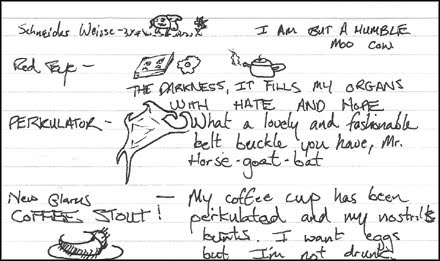 Schneider Weisse - I AM BUT A HUMBLE
MOO COW
Red Eye -
THE DARKNESS, IT FILLS MY ORGANS
WITH HATE AND HOPE
PERKULATOR - What a lovely and fashionable
belt buckle you have, Mr.
Horse-goat-bat
New Glarus
COFFEE STOUT! - My coffee cup has been
perkulated and my nostrils
bunts. I want eggs
but I'm not drunk.